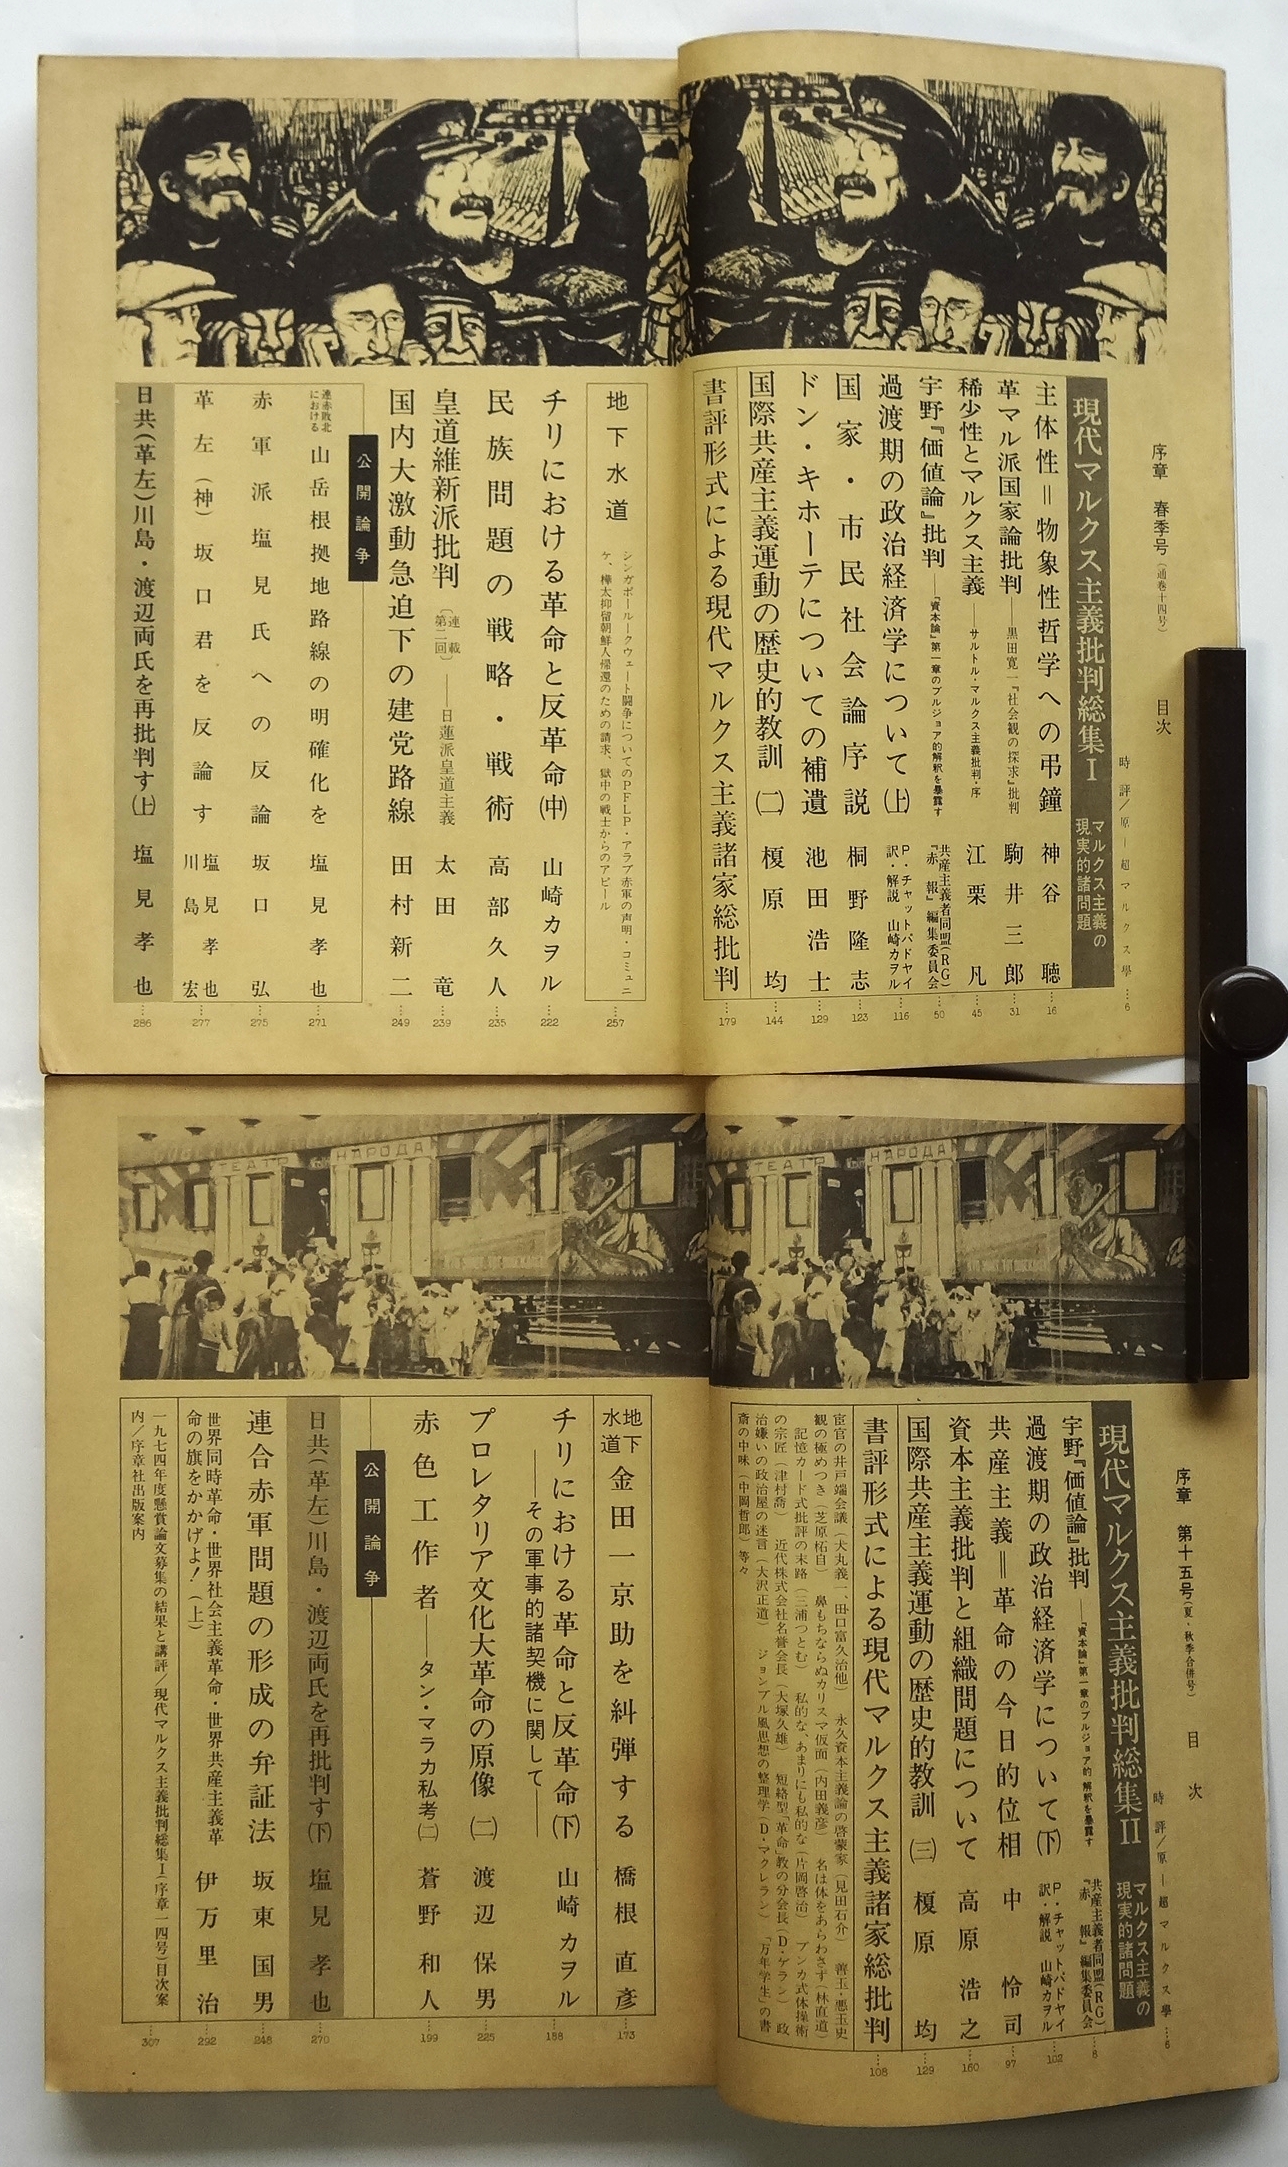 序章 春季号(通巻十四号) 目次
時評/原―超マルクス學 …6
現代マルクス主義批判総集Ⅰ マルクス主義の現実的諸問題
主体性=物象性哲学への弔鐘 神谷聴 …16
革マル派国家論批判――黒田寛一『社会観の探求』批判 駒井三郎 …31
稀少性とマルクス主義――サルトル・マルクス主義批判・序 江栗凡 …45
宇野『価値論』批判――『資本論』第一章のブルジョア的解釈を暴露す 共産主義者同盟(RG)『赤報』編集委員会 …50
過渡期の政治経済学について(上) P・チャットパドヤイ 訳・解説 山崎カヲル …116
国家・市民社会論序説 桐野隆志 …123
ドン・キホーテについての補遺 池田浩士 …129
国際共産主義運動の歴史的教訓(二) 榎原均 …144
書評形式による現代マルクス主義諸家総批判 …179
地下水道
シンガポールークウェート闘争についてのPFLP・アラブ赤軍の声明・コミュニ
ケ、樺太抑留朝鮮人帰還のための請求、獄中の戦士からのアピール …257
チリにおける革命と反革命(中) 山崎カヲル …222
民族問題の戦略・戦術 高部久人 …235
皇道維新派批判(連載第二回)――日蓮派皇道主義 太田竜 …239
国内大激動急迫下の建党路線 田村新二 …249
公開論争
連赤敗北における 山岳根拠地路線の明確化を 塩見孝也 …271
赤軍派塩見氏への反論 坂口弘 …275
革左(神)坂口君を反論す 塩見孝也 川島宏 …277
日共(革左)川島・渡辺両氏を再批判す(上) 塩見孝也 …286
ТЕАТР НАРОДА
ТЕАТР НАРОДА
序章 第十五号(夏・秋季合併号) 目次
時評/原―超マルクス學 …6
現代マルクス主義批判総集Ⅱ マルクス主義の現実的諸問題
宇野『価値論』批判――『資本論』第一章のブルジョア的解釈を暴露す 共産主義者同盟(RG)『赤報』編集委員会 …8
過渡期の政治経済学について(下) P・チャットパドヤイ 訳・解説 山崎カヲル …102
共産主義=革命の今日的位相 中怜司 …97
資本主義批判と組織問題について 高原浩之 …160
国際共産主義運動の歴史的教訓(三) 榎原均 …129
書評形式による現代マルクス主義諸家総批判 …108
宦官の井戸端会議(犬丸義一、田口富久治他) 永久資本主義論の啓蒙家(見田石介) 善玉・悪玉史
観の極めつき(芝原柘自) 鼻もちならぬカリスマ仮面(内田義彦) 名は体をあらわさず(林直道)
記憶カード式批評の末路(三浦つとむ) 私的な、あまりにも私的な(片岡啓治) ブンカ式体操術
の宗匠(津村喬) 近代株式会社名誉会長(大塚久雄) 短絡型「革命」教の分会長(D・ゲラン) 政
治嫌いの政治屋の迷言(大沢正道) ジョンブル風思想の整理学(D・マクレラン) 「万年学生」の書
斎の中味(中岡哲郎)等々
地下水道 金田一京助を糾弾する 橋根直彦 …173
チリにおける革命と反革命(下) 山崎カヲル …188
――その軍事的諸契機に関して――
プロレタリア文化大革命の原像(二) 渡辺保男 …225
赤色工作者―タン・マラカ私考(二) 蒼野和人 …199
公開論争
日共(革左)川島・渡辺両氏を再批判す(下) 塩見孝也 …270
連合赤軍問題の形成の弁証法 坂東国男 …248
世界同時革命・世界社会主義革命・世界共産主義革
命の旗をかかげよ!(上) 伊万里治 …292
一九七四年度懸賞論文募集の結果と講評/現代マルクス主義批判総集Ⅰ(序章一四号)目次案
内/序章社出版案内 …307